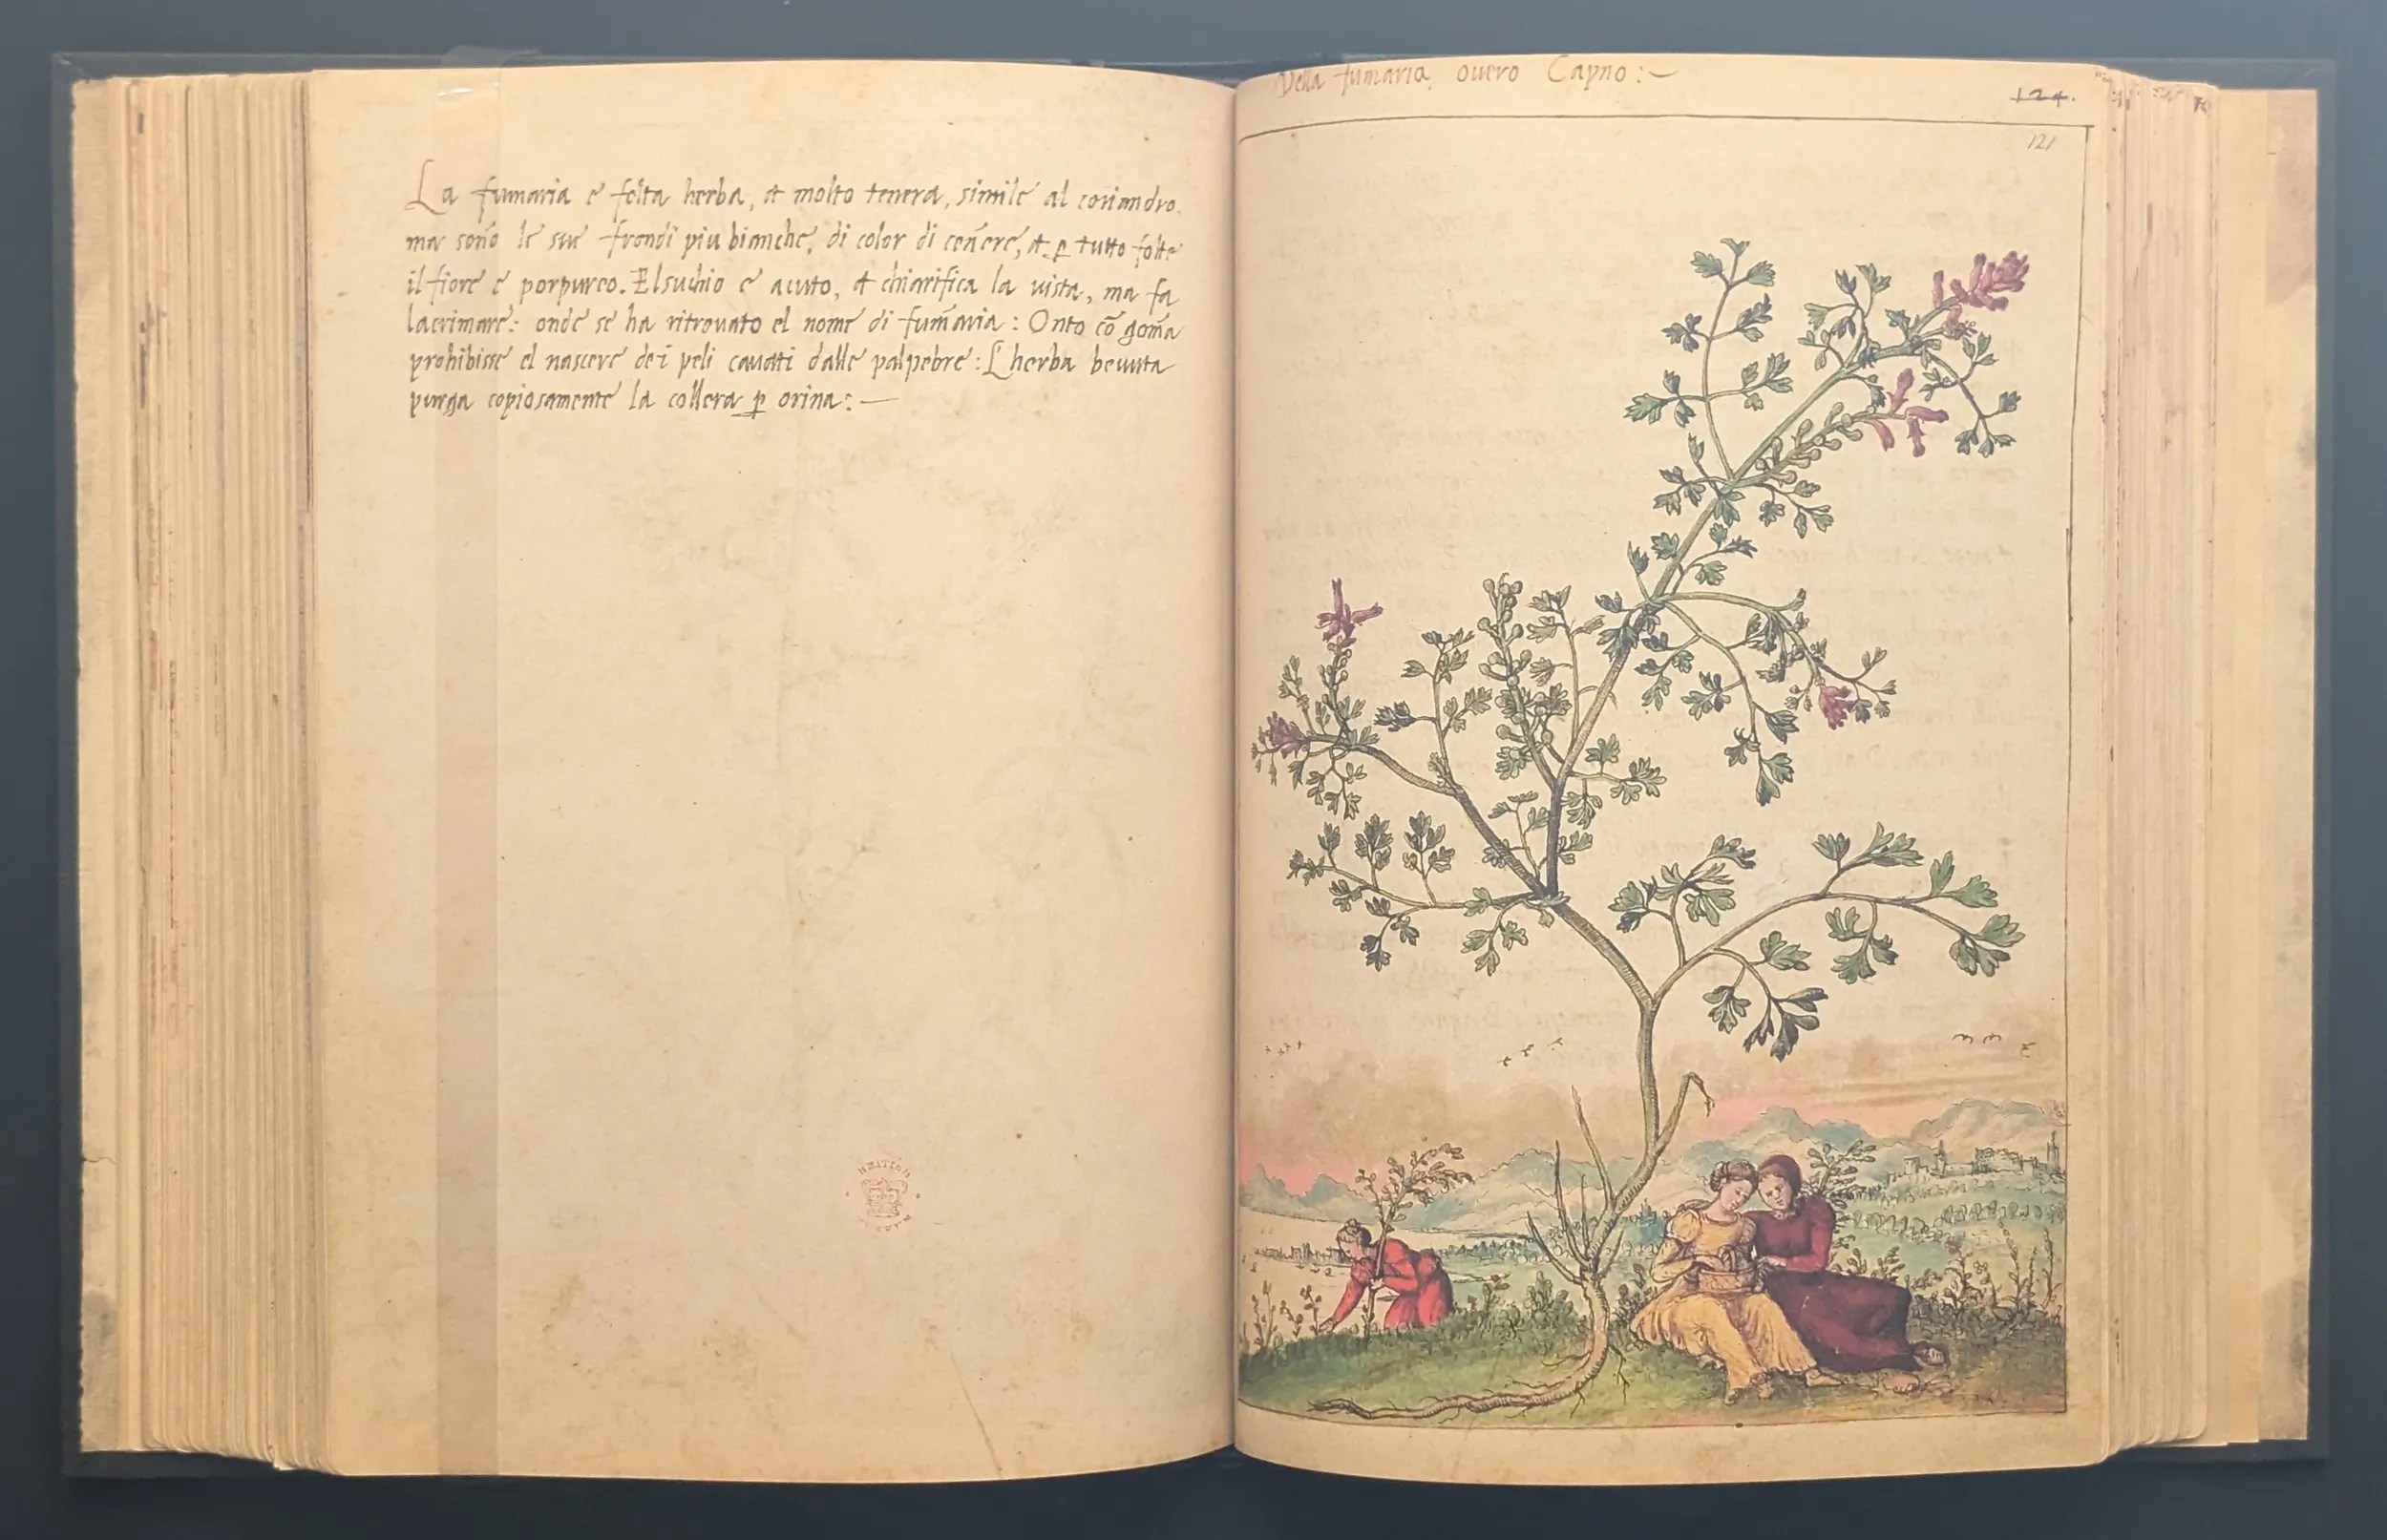 La fumaria e folta herba, et molto tenera, simile al coriandro,
ma sono le sue frondi piu bianche, di color di cenere, et p tutto folte
il fiore e porpureo. El suchio e acuto, et chiarifica la vista, ma fa
lacrimare: onde se ha ritrovato el nome di fumaria: Onto cō goma
prohibisse el nascere dei peli cavati dalle palpebre: L herba bevuta
purga copiosamente la collera p orina:—
Della fumaria, overo Capno:—
124.
121